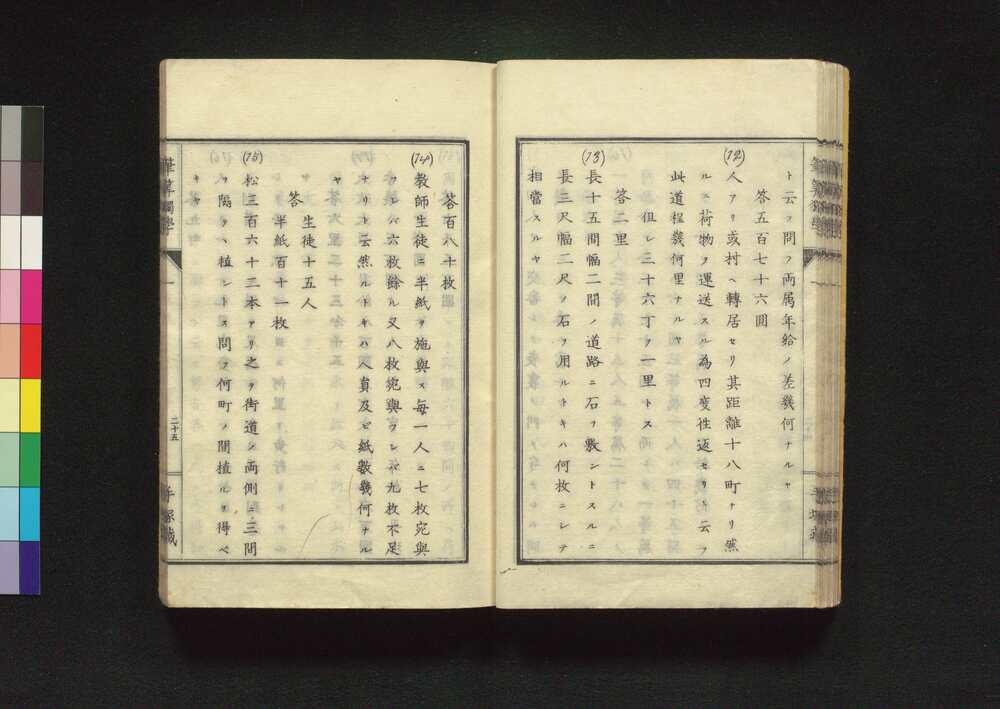 ト云フ問フ両属年給ノ差幾何ナルヤ
答五百七十六圓
(12)
人アリ或村ヘ轉居セリ其距離十八町ナリ然
ルニ荷物ヲ運送スル為四度徃返セリト云フ
此道程幾何里ナルヤ
但シ三十六丁ヲ一里トス
答二里
(13)
長十五間幅二間ノ道路ニ石ヲ敷ントスルニ
長三尺幅二尺ノ石ヲ用ルトキハ何枚ニシテ
相當スルヤ
答百八十枚
(14)
教師生徒ニ半紙ヲ施與ス毎一人ニ七枚宛與
フレバ六枚餘ル又八枚宛與フレバ九枚不足
ナリト云然ルトキハ人員及ビ紙數幾何ナル
ヤ
生徒十五人
答
半紙百十一枚
(15)
松三百六十二本アリ之ヲ街道ノ両側ニ三間
ヲ隔テヽ植ントス問フ何町ノ間植ルヲ得ベ
キヤ
筆算獨學
二十五